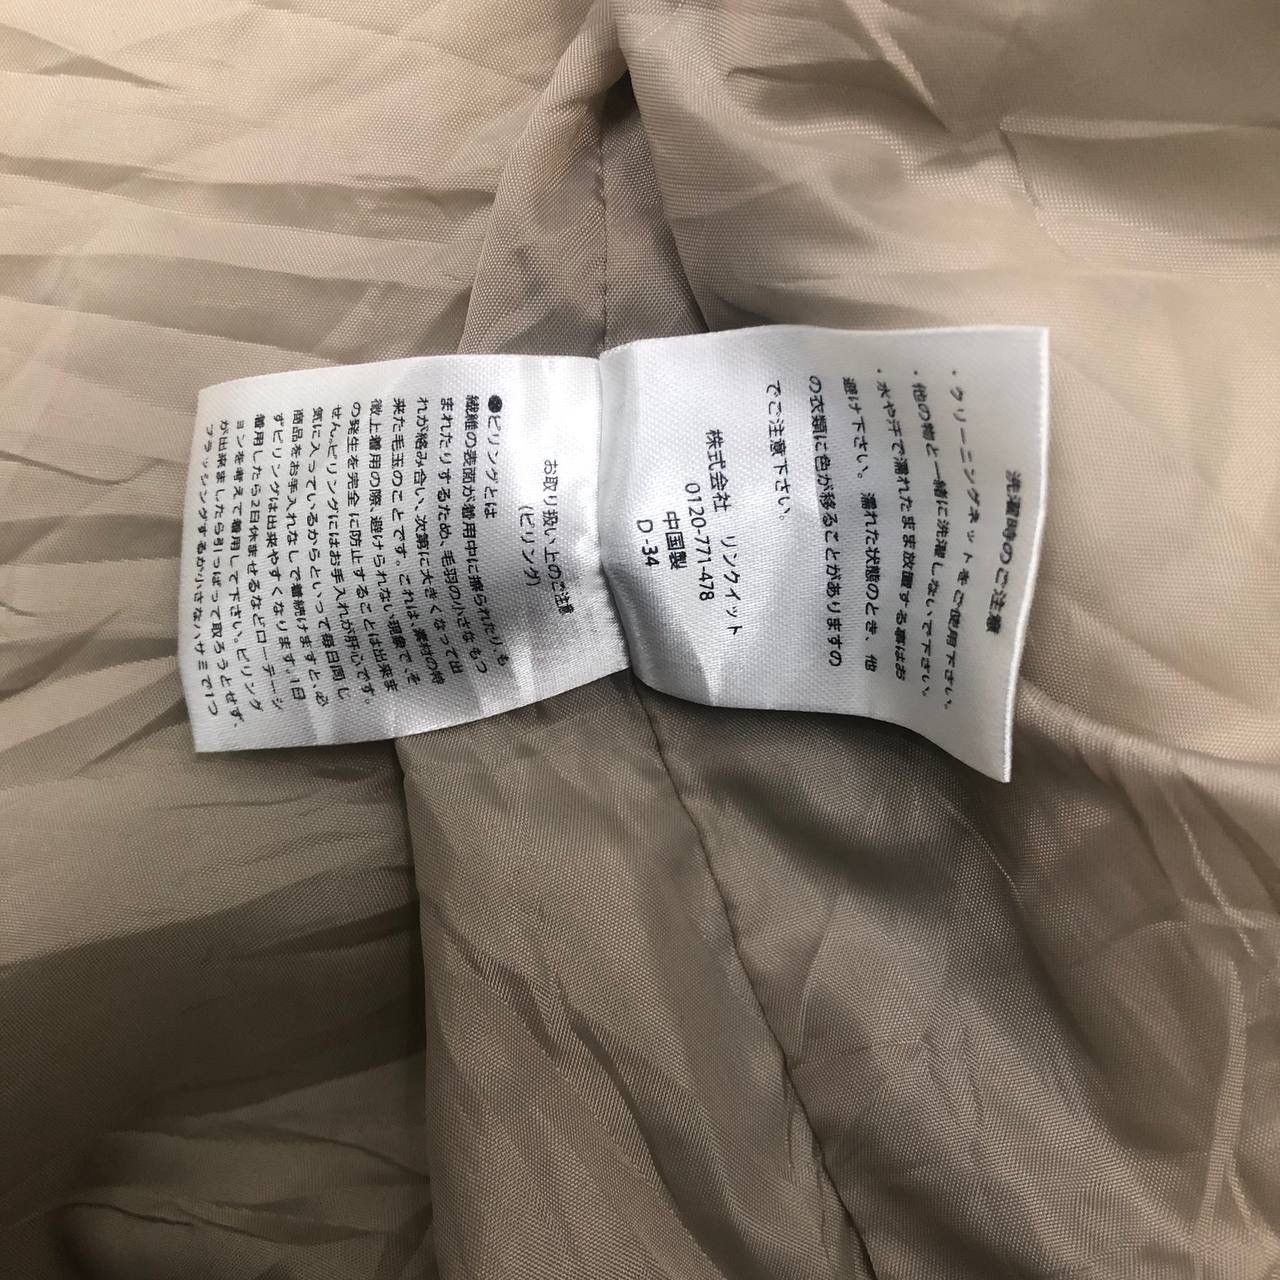 洗濯時のご注意
・クリーニングネットをご使用下さい。
・他の物と一緒に洗濯しないで下さい。
・水や汗で濡れたまま放置する事はお
避け下さい。 濡れた状態のとき、他
の衣類に色が移ることがありますの
でご注意下さい。
株式会社 リンクイット
0120-771-478
中国製
D-34
お取り扱い上のご注意
(ピリング)
●ピリングとは
繊維の表面が着用中に擦られたり、も
まれたりするため、毛羽の小さなもつ
れが絡み合い、次第に大きくなって出
来た毛玉のことです。これは、素材の特
徴上着用の際、避けられない現象で、そ
の発生を完全に防止することは出来ま
せん。ピリングにはお手入れが肝心です。
気に入っているからといって毎日同じ
商品をお手入れなしで着続けますと、必
ずピリングは出来やすくなります。1日
着用したら2日休ませるなどローテーシ
ョンを考えて着用して下さい。ピリング
が出来ましたら引っぱって取ろうとせず、
ブラッシングするか小さなハサミで1つ